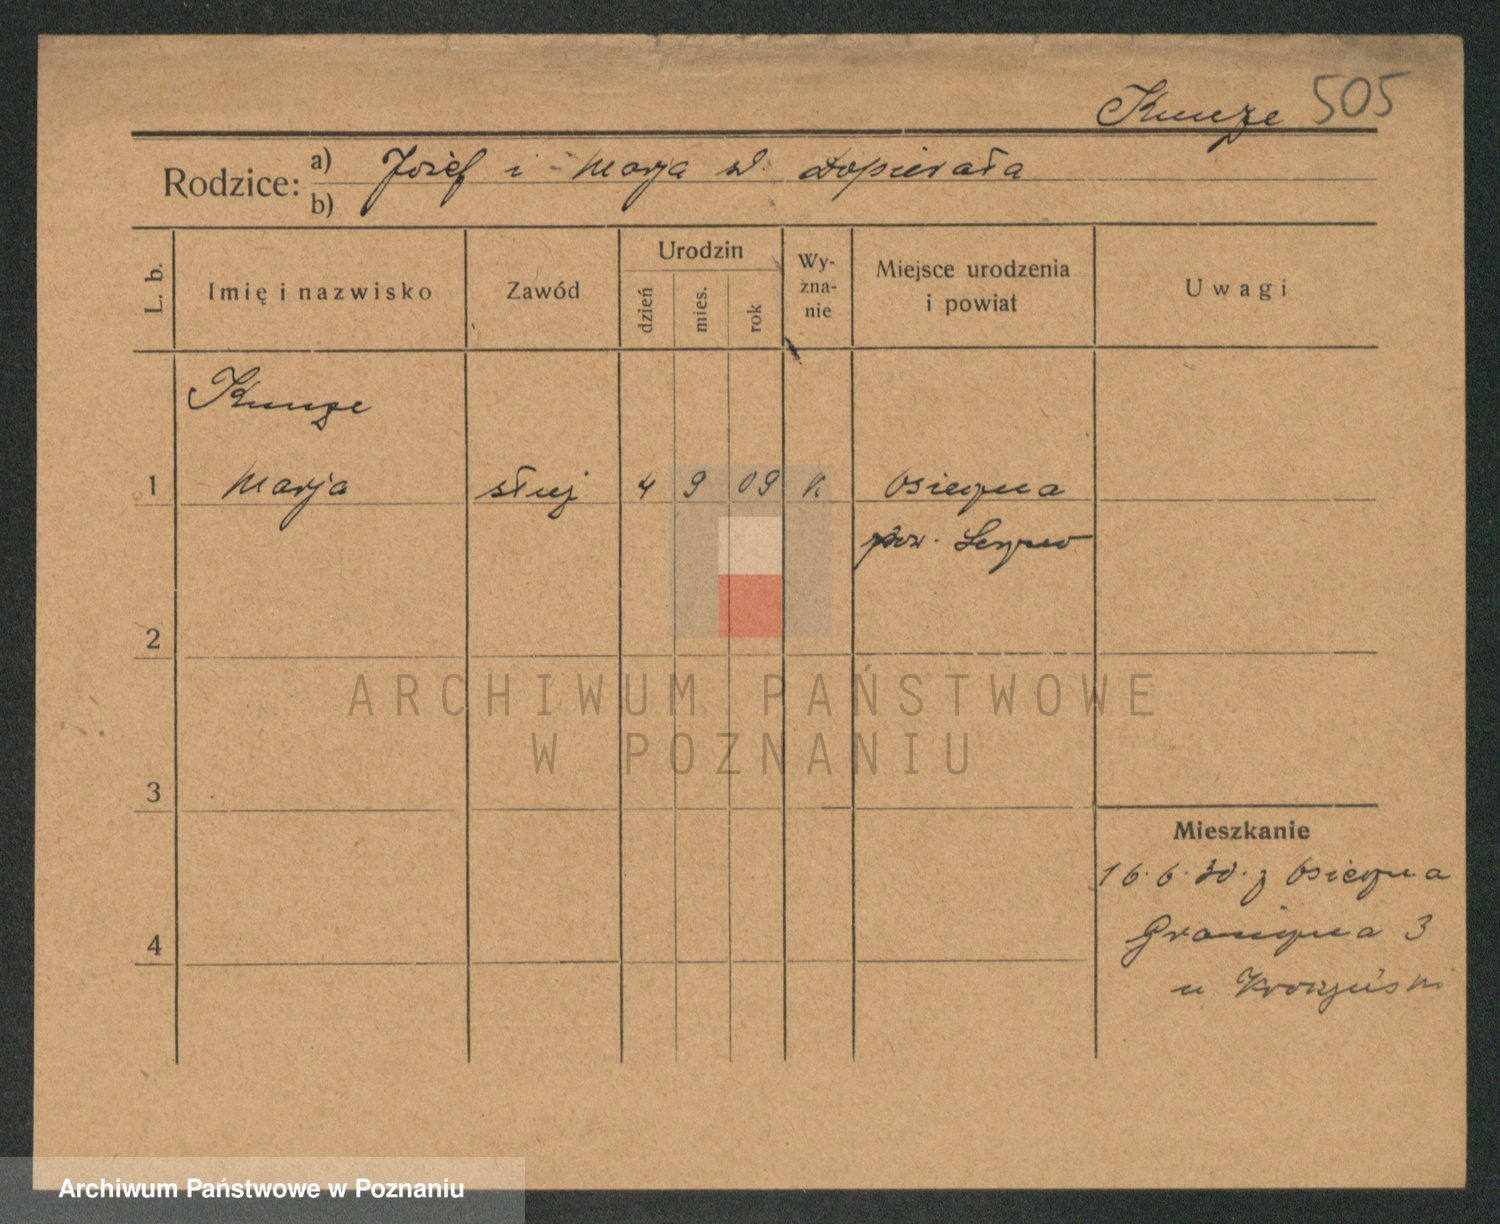 Kunze 505
Rodzice: a) Józef i Marja zd. Dopierała
b)
L. b. Imię i nazwisko Zawód Urodzin dzień mies. rok Wy-zna-nie Miejsce urodzenia i powiat Uwagi
Kunze
1 Marja służ 4 9 09 k Osieczna
pow. Leszno
2
ARCHIWUM PAŃSTWOWE
W POZNANIU
3
Mieszkanie
16.6.30. z Osieczna
4 Graniczna 3
u
Archiwum Państwowe w Poznaniu